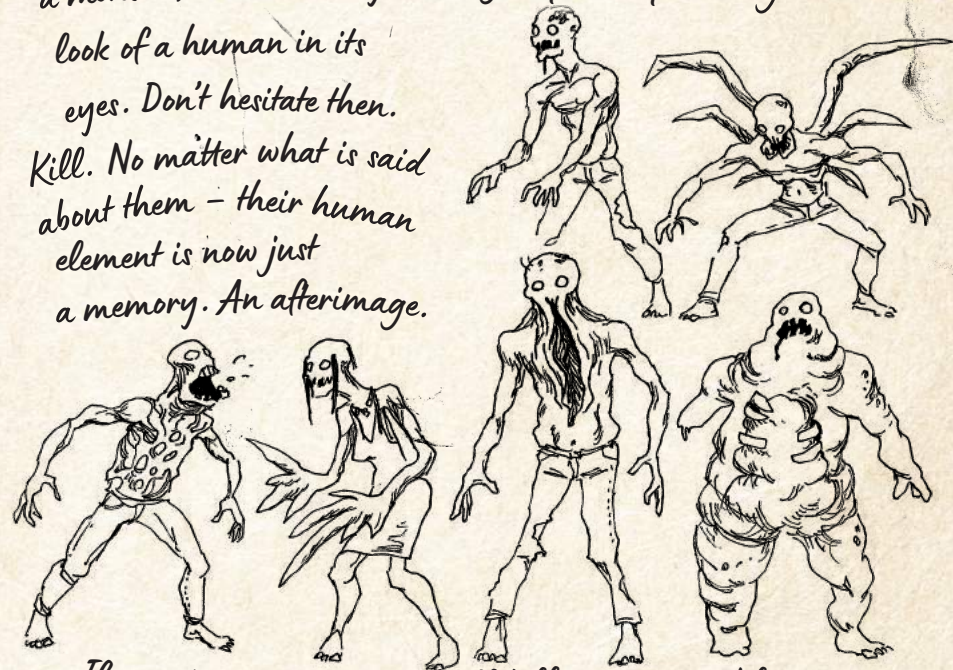 look of a human in its
eyes. Don't hesitate then.
Kill. No matter what is said
about them – their human
element is now just
a memory. An afterimage.